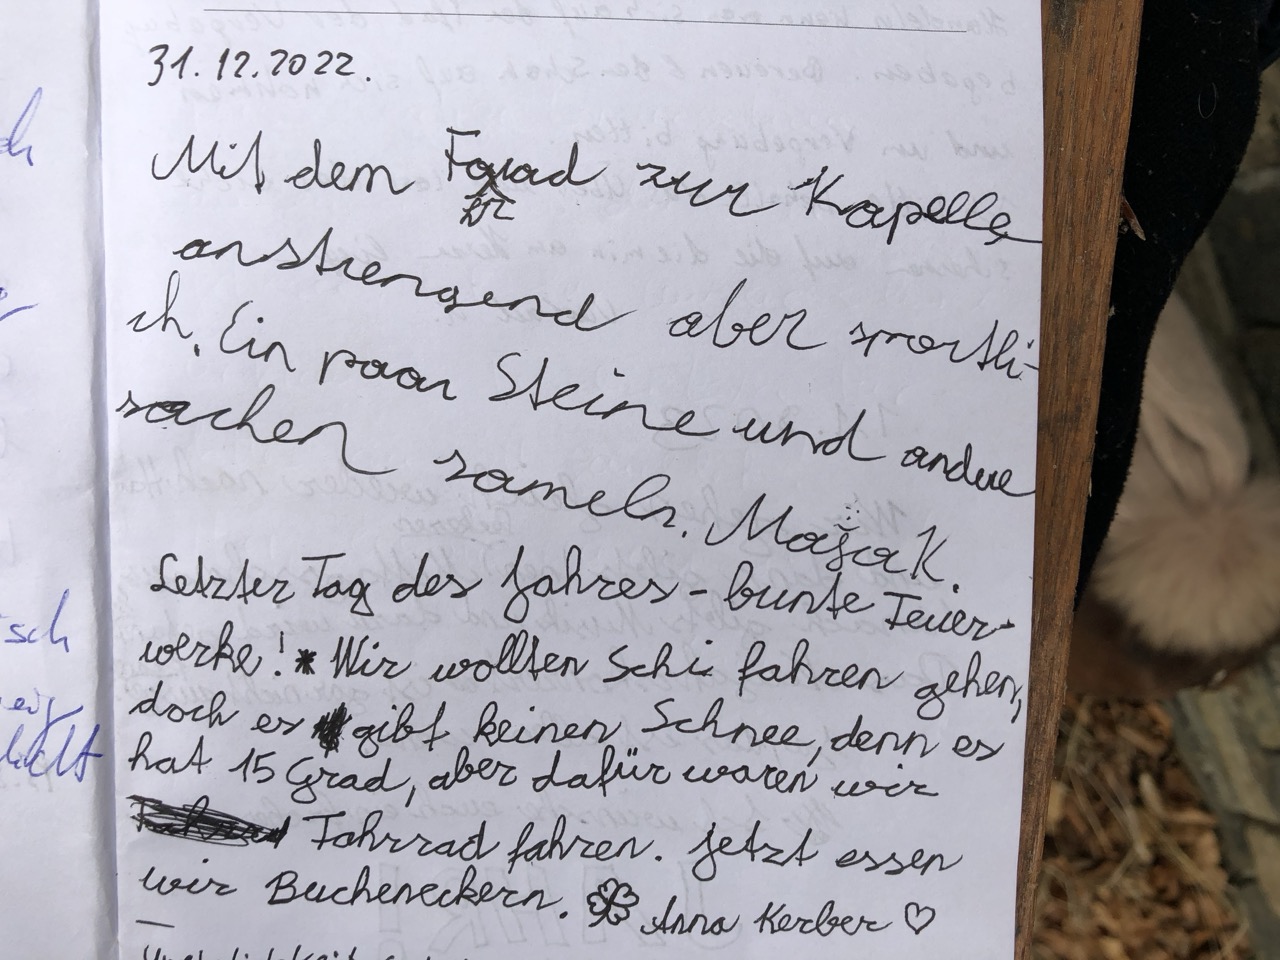 31.12.2022.
Mit dem Fahrrad zur Kapelle,
anstrengend aber sportli-
ch. Ein paar Steine und andere
sachen sameln. Maja K.
Letzter Tag des Jahres - bunte Feuer-
werke! * Wir wollten Schi fahren gehen,
doch es gibt keinen Schnee, denn es
hat 15 Grad, aber dafür waren wir
Fahrrad fahren. Jetzt essen
wir Bucheneckern. Anna Kerber ♡